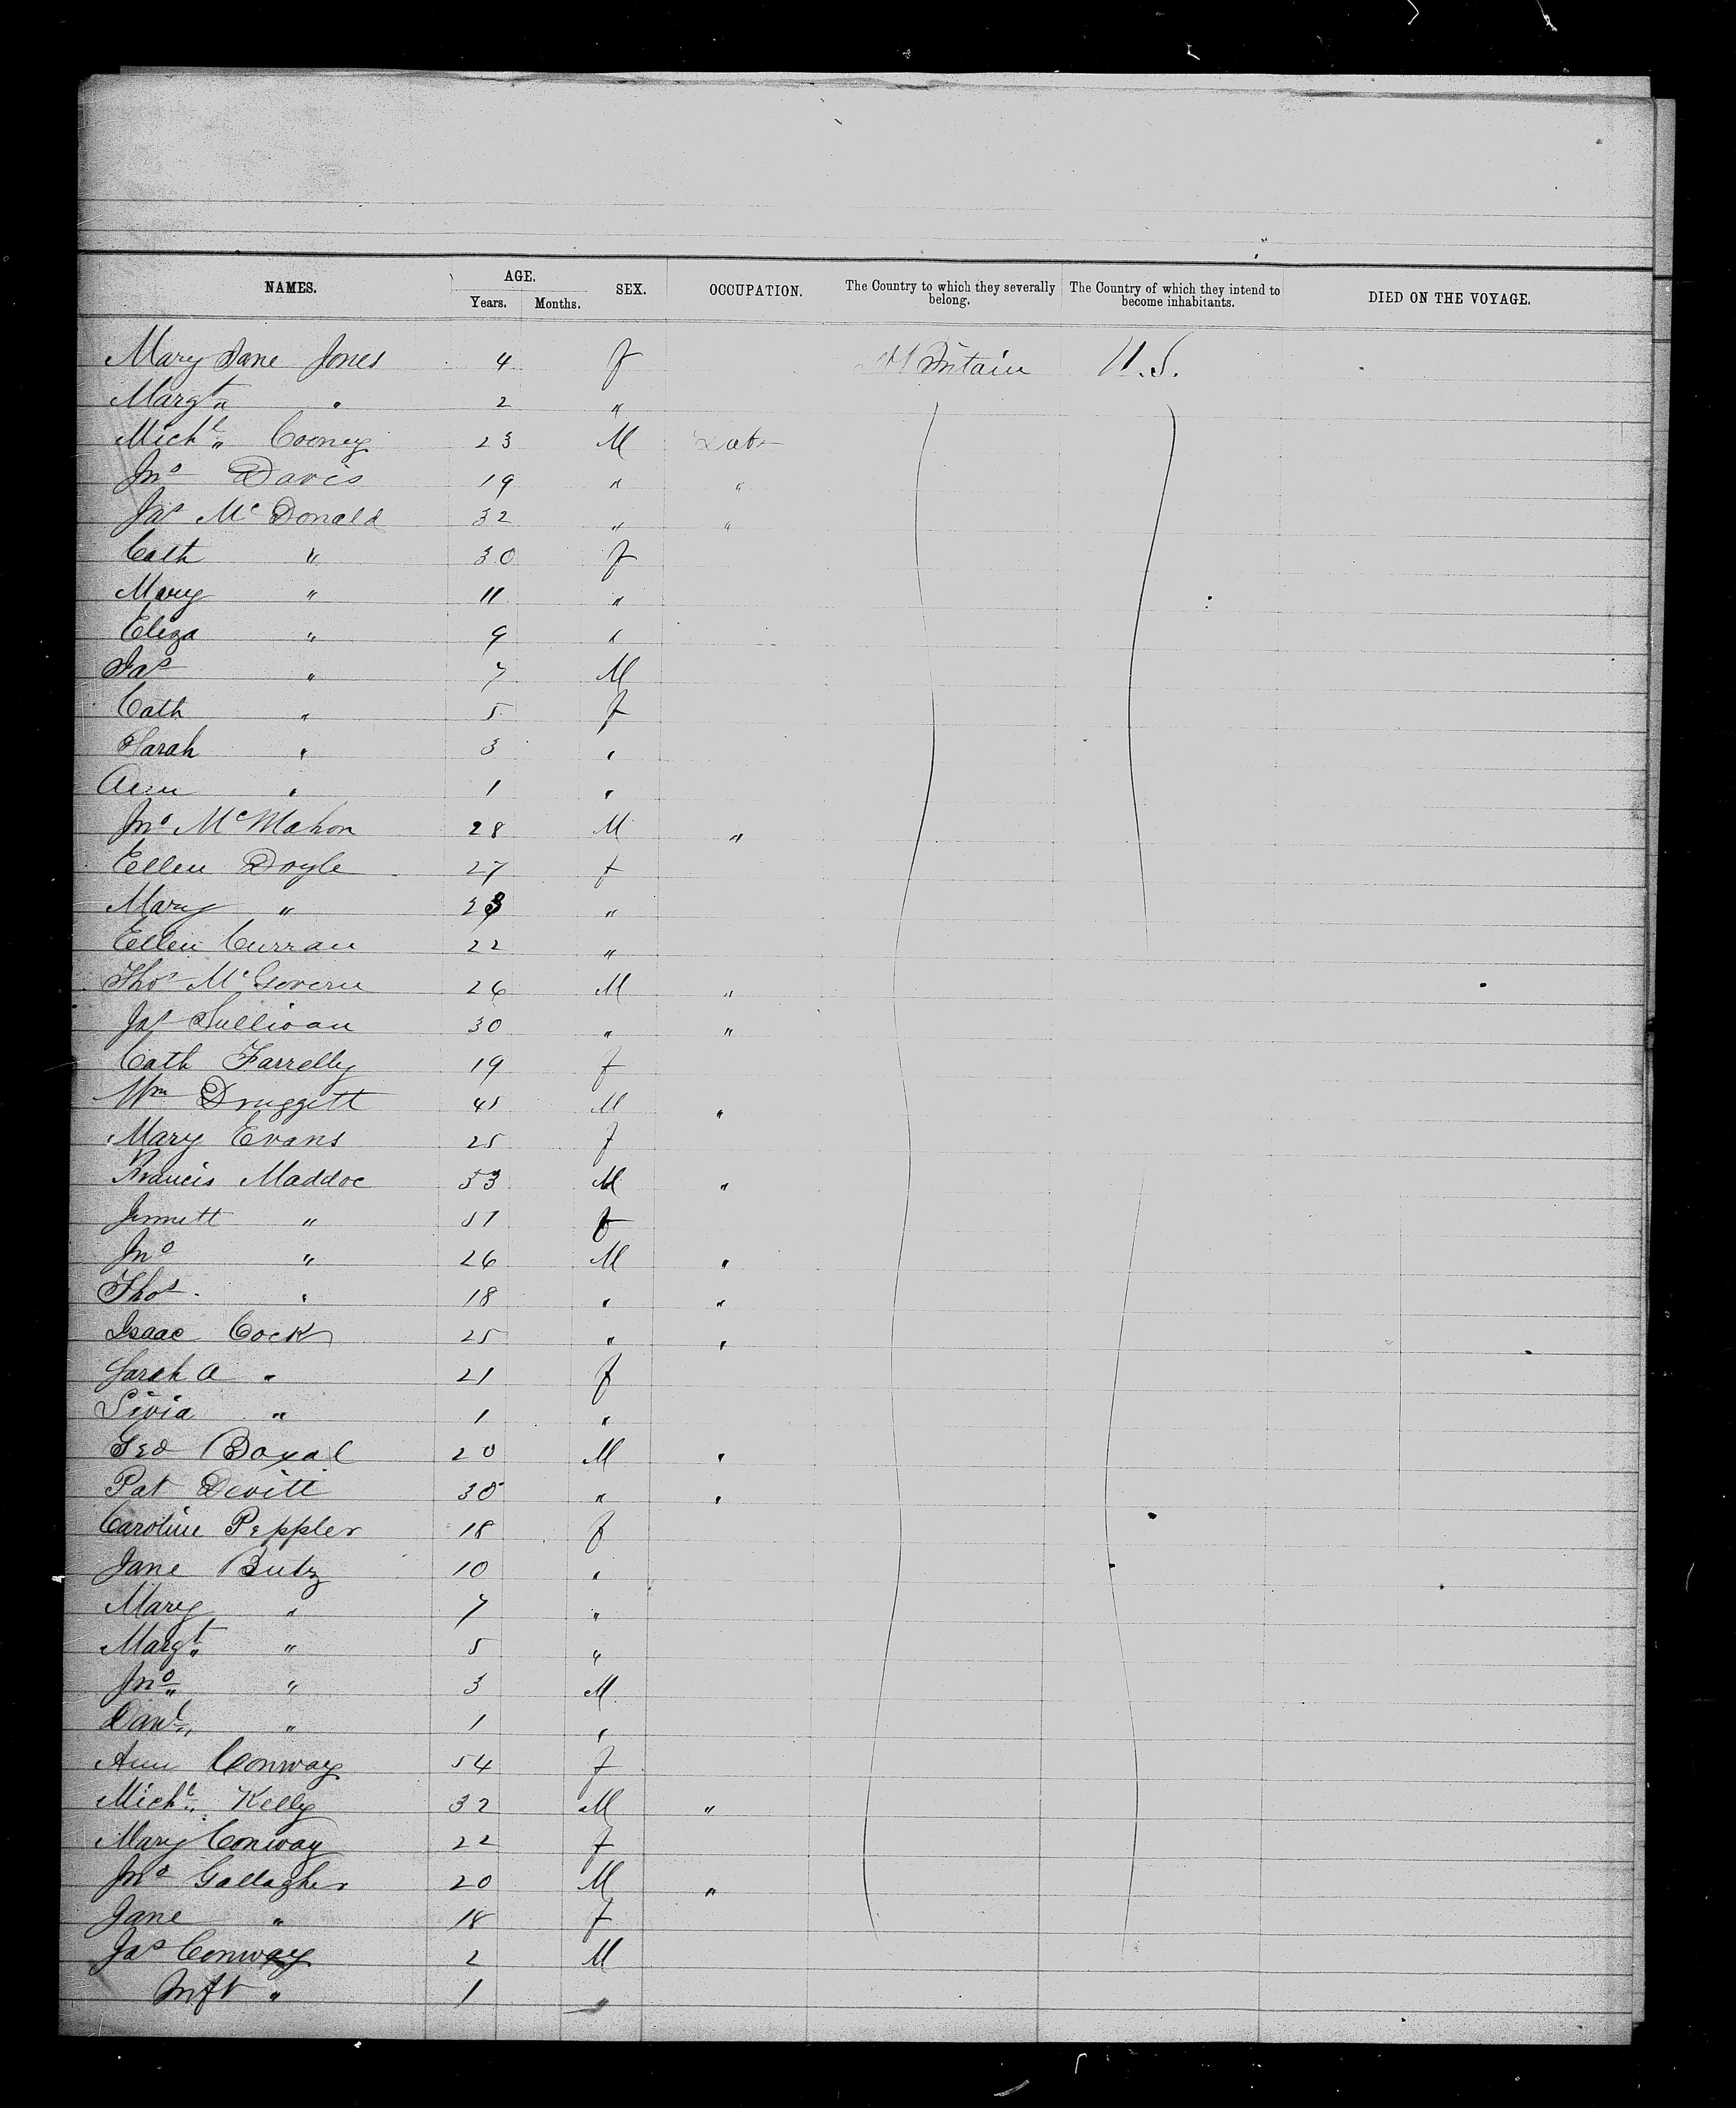 NAMES. AGE. Years. Months. SEX. OCCUPATION. The Country to which they severally belong. The Country of which they intend to become inhabitants. DIED ON THE VOYAGE.
Mary Jane Jones 4 f Britain U.S.
Margt " 2 "
Michl Cooney 23 M Labr
Jno Davis 19 " "
Jas McDonald 32 " "
Cath " 30 f
Mary " 11 "
Eliza " 9 "
Jas " 7 M
Cath " 5 f
Sarah " 3 "
Ann " 1 "
Jno McMahon 28 M "
Ellen Doyle 27 f
Mary " 23 "
Ellen Curran 22 "
Thos McGovern 26 M "
Jas Sullivan 30 " "
Cath Farrelly 19 f
Wm Druggett 45 M "
Mary Evans 25 f
Francis Maddoc 53 M "
Jennett " 51 f
Jno " 26 M "
Thos " 18 " "
Isaac Cock 25 " "
Sarah A " 21 f
Livia " 1 "
Geo Boyal 20 M "
Pat Devitt 30 " "
Caroline Peppler 18 f
Jane Butz 10 "
Mary " 7 "
Margt " 5 "
Jno " 3 M
Danl " 1 "
Ann Conway 54 f
Michl Kelly 32 M "
Mary Conway 22 f
Jno Gallagher 20 M "
Jane " 18 f
Jas Conway 2 M
Inft " 1 "